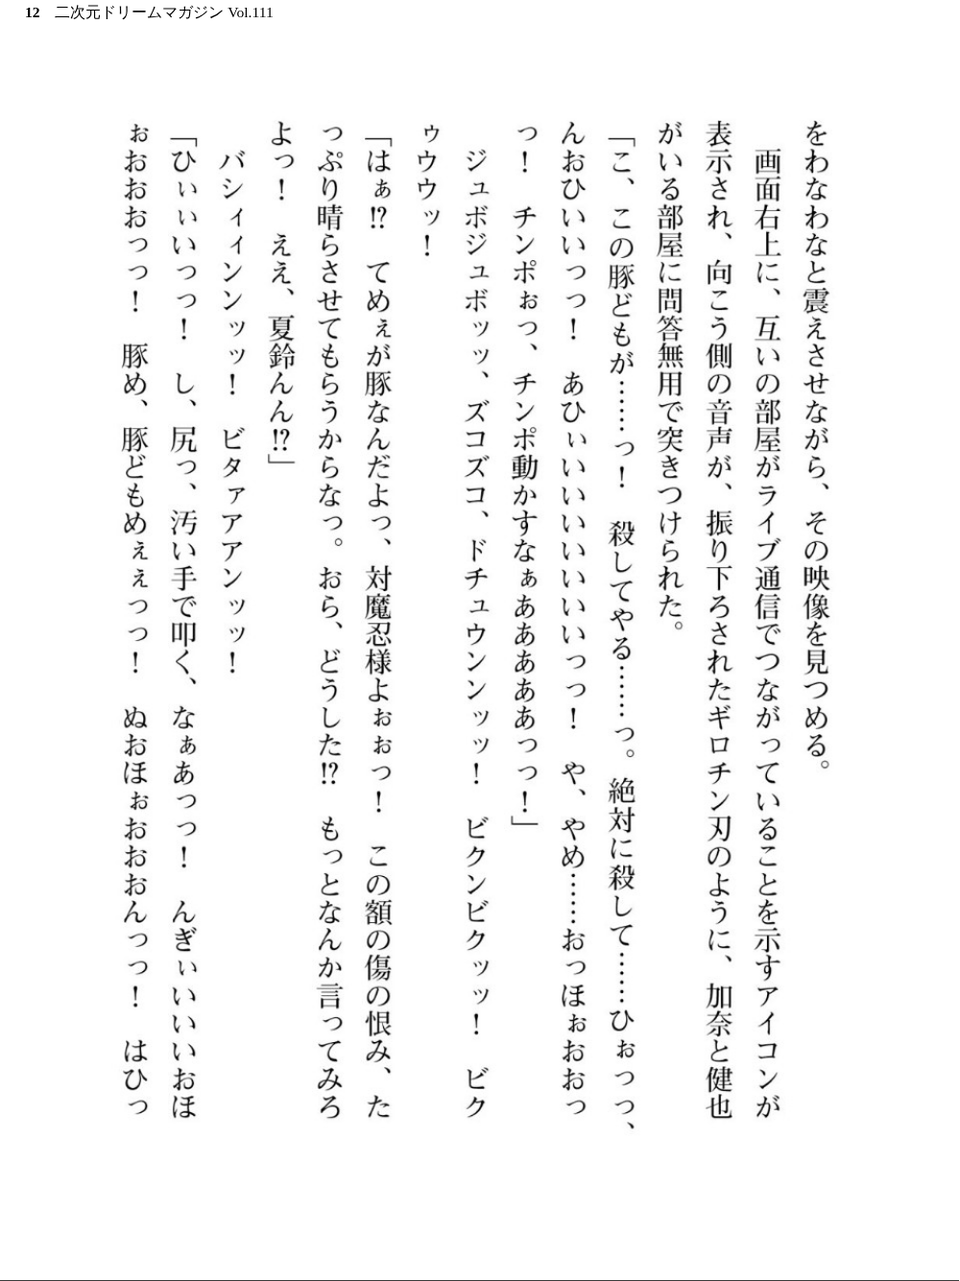 12 二次元ドリームマガジン Vol.111
をわなわなと震えさせながら、その映像を見つめる。
　画面右上に、互いの部屋がライブ通信でつながっていることを示すアイコンが
表示され、向こう側の音声が、振り下ろされたギロチン刃のように、加奈と健也
がいる部屋に問答無用で突きつけられた。
「こ、この豚どもが……っ！　殺してやる……っ。絶対に殺して……ひぉっっ、
んおひいいっっ！　あひぃいいいいいいいっっ！　や、やめ……おっほぉおおっ
っ！　チンポぉっ、チンポ動かすなぁあああああっっ！」
　ジュボジュボッッ、ズコズコ、ドチュウンンッッ！　ビクンビクッッ！　ビク
ゥウウッ！
「はぁ⁉　てめぇが豚なんだよっ、対魔忍様よぉぉっ！　この額の傷の恨み、た
っぷり晴らさせてもらうからなっ。おら、どうした⁉　もっとなんか言ってみろ
よっ！　ええ、夏鈴んん⁉」
　バシィィンンッッ！　ビタァアアンッッ！
「ひぃぃいっっ！　し、尻っ、汚い手で叩く、なぁあっっ！　んぎぃいいいおほ
ぉおおおっっ！　豚め、豚どもめぇぇっっ！　ぬおほぉおおおんっっ！　はひっ